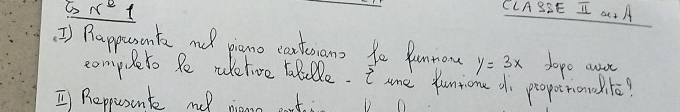 Es N° 1
CLASSE II A
I) Rappresenta nel piano cartesiano la funzione y = 3x dopo aver
completato le relative tabelle - È una funzione di proporzionalità?
II) Rappresenta nel piano